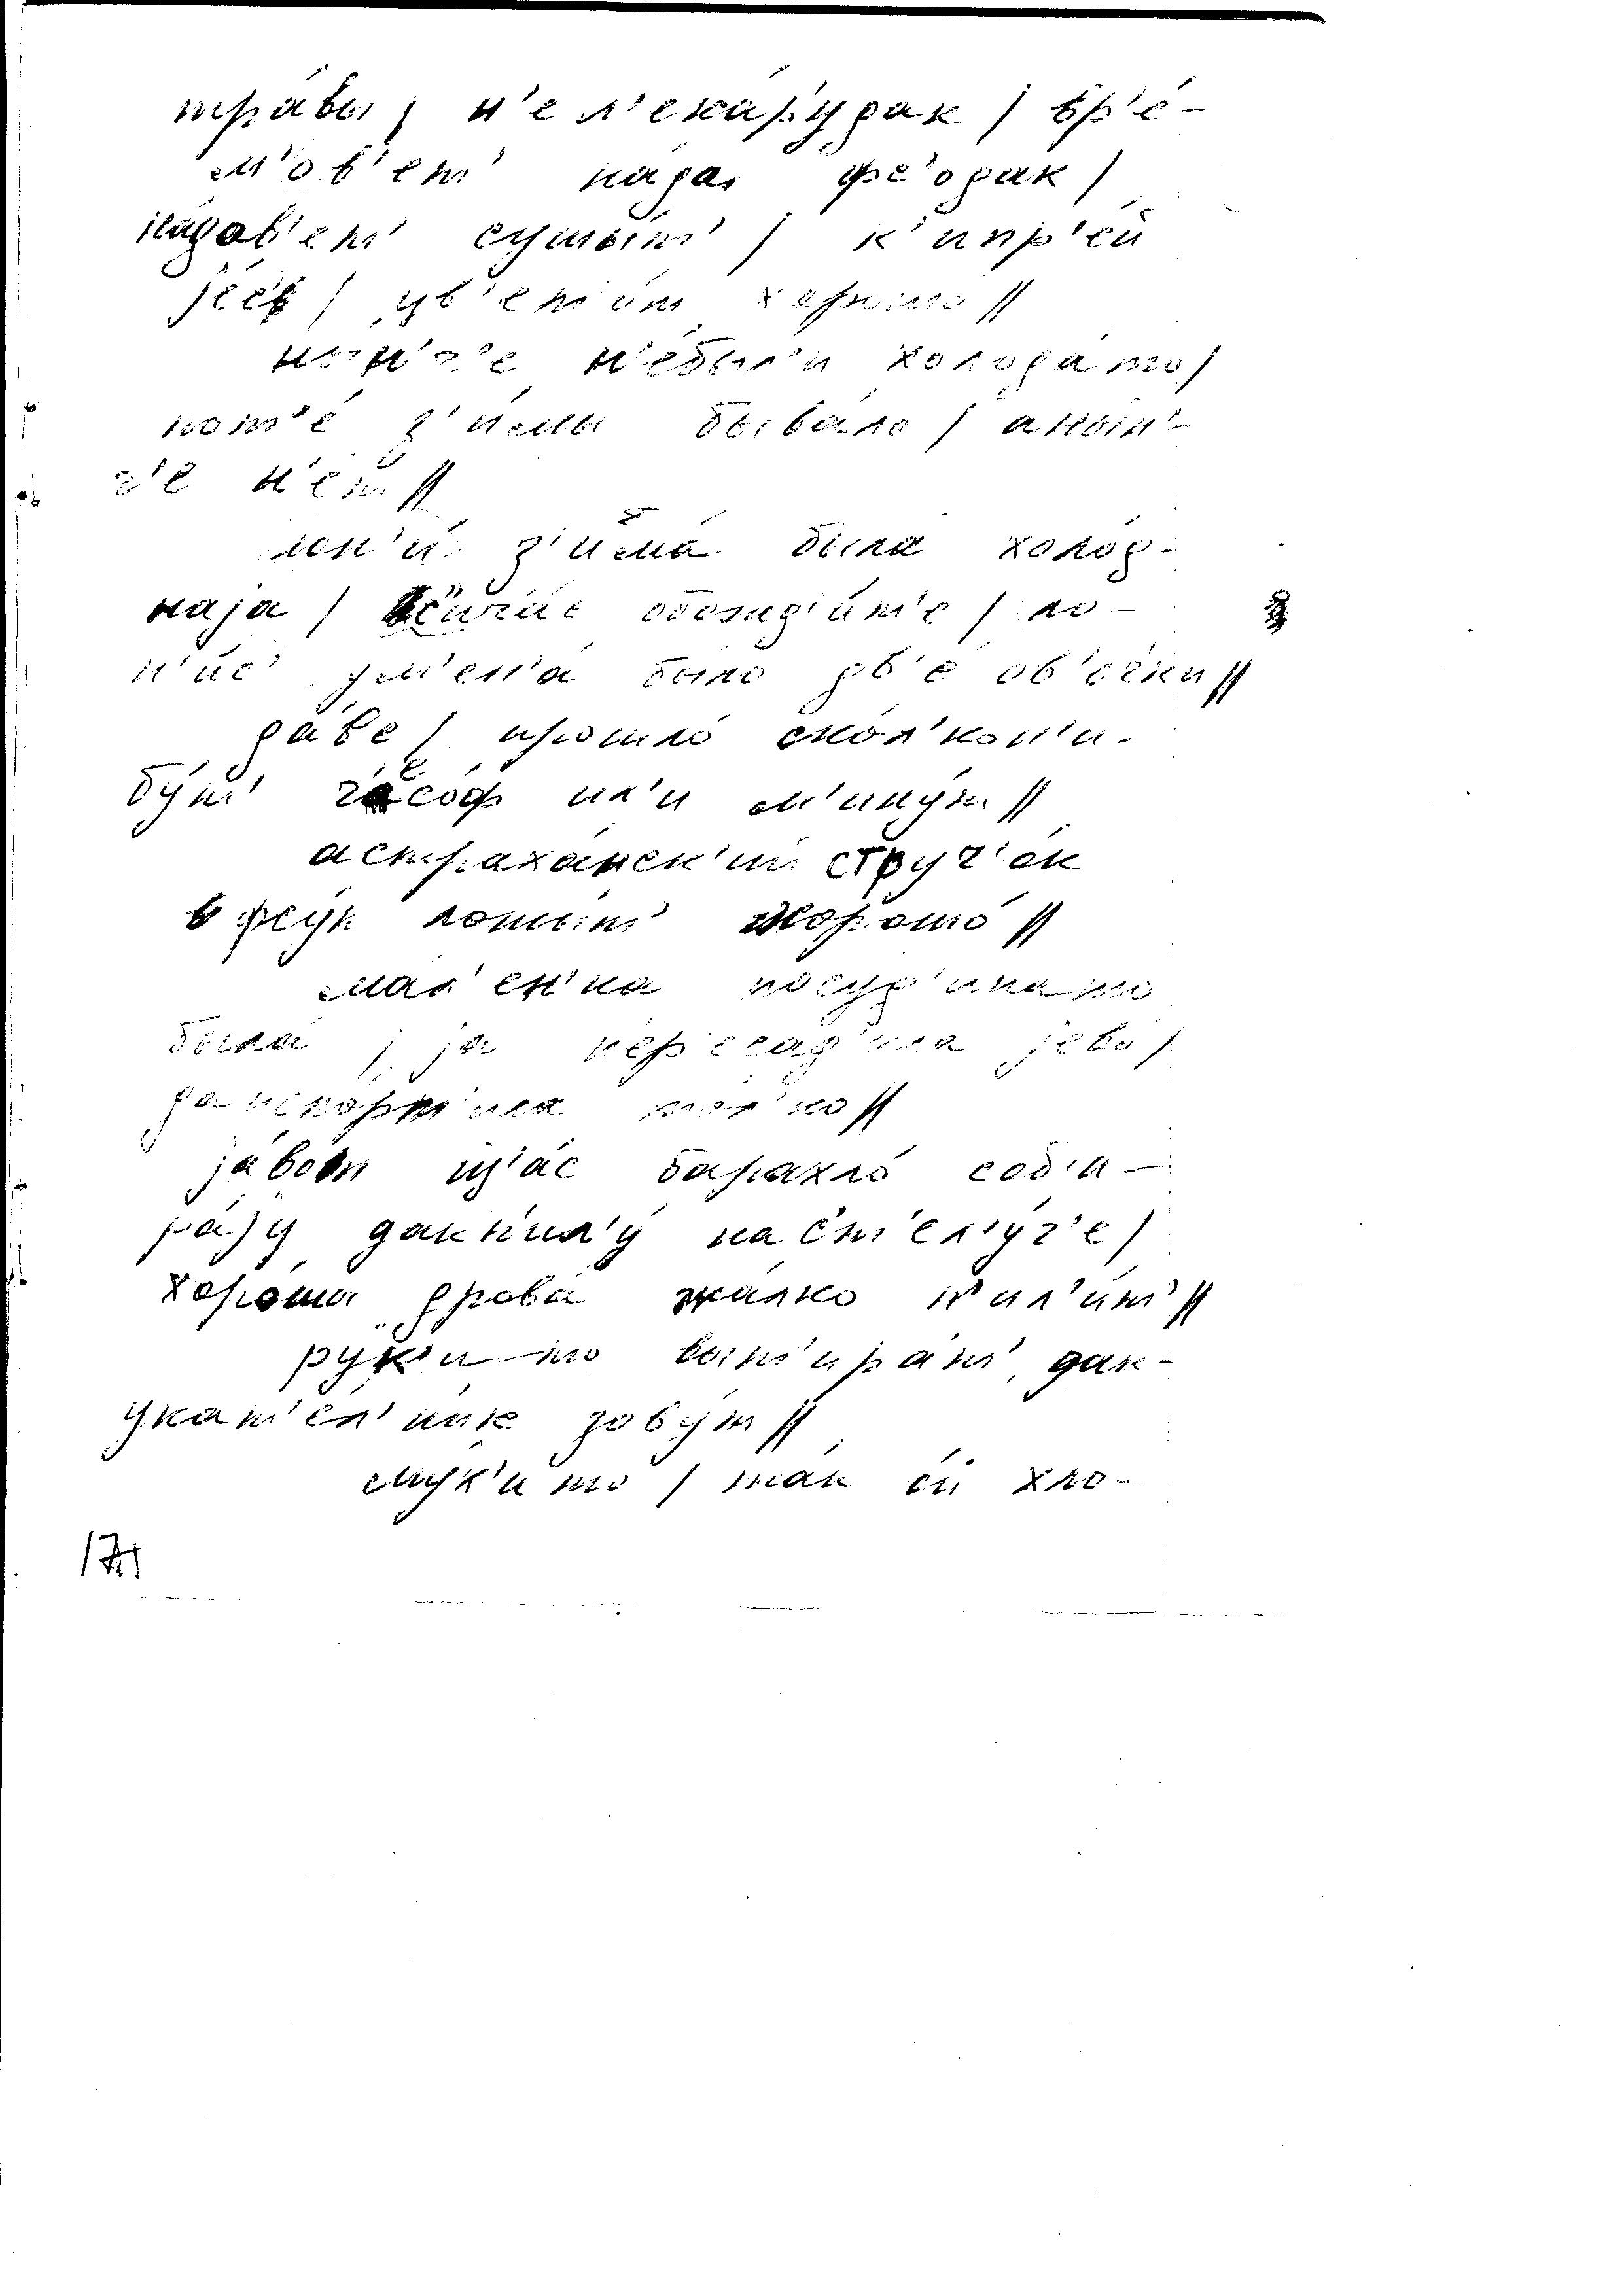 тра́вы / н'е л'ека́р'у дак / вр'е́-
м'о в'ет' на́да фс'о дак /
на́да в'ет' сушы́т' / к'ипр'е́й
је́с' / цв'ето́т хорошо //
ны́н'ч'е н'е́был'и холода́ то /
зʼимы быва́ло / аны́н'-
ч'е н'ет //
з'има́ была холо́д-
наја / обожд'и́т'е / ло-
н'и́с' ум'ен'а́ было дв'е ов'е́чки //
да́ве / прошло́ ско́л'кон'и-
бу́т' ч'есо́ф ил'и м'ину́т //
астраха́нск'ий струч'о́к
в фсу́п ложы́т' хорошо́ //
мал'ен'ка посуд'ина-то
была́ / ја пер'есад'ила јево́ /
да испорт'ила то́л'ко //
ја́ вот щ'ас барахло́ соб'и-
ра́ју дак к'ил'у́ на ст'ел'у́г'е /
хоро́ша дрова́ жа́лко п'ил'и́т' //
ру́к'и-то выт'ира́т', дак
укат'е́л'ник зову́т //
мук'и́ то / так ой хло-
171